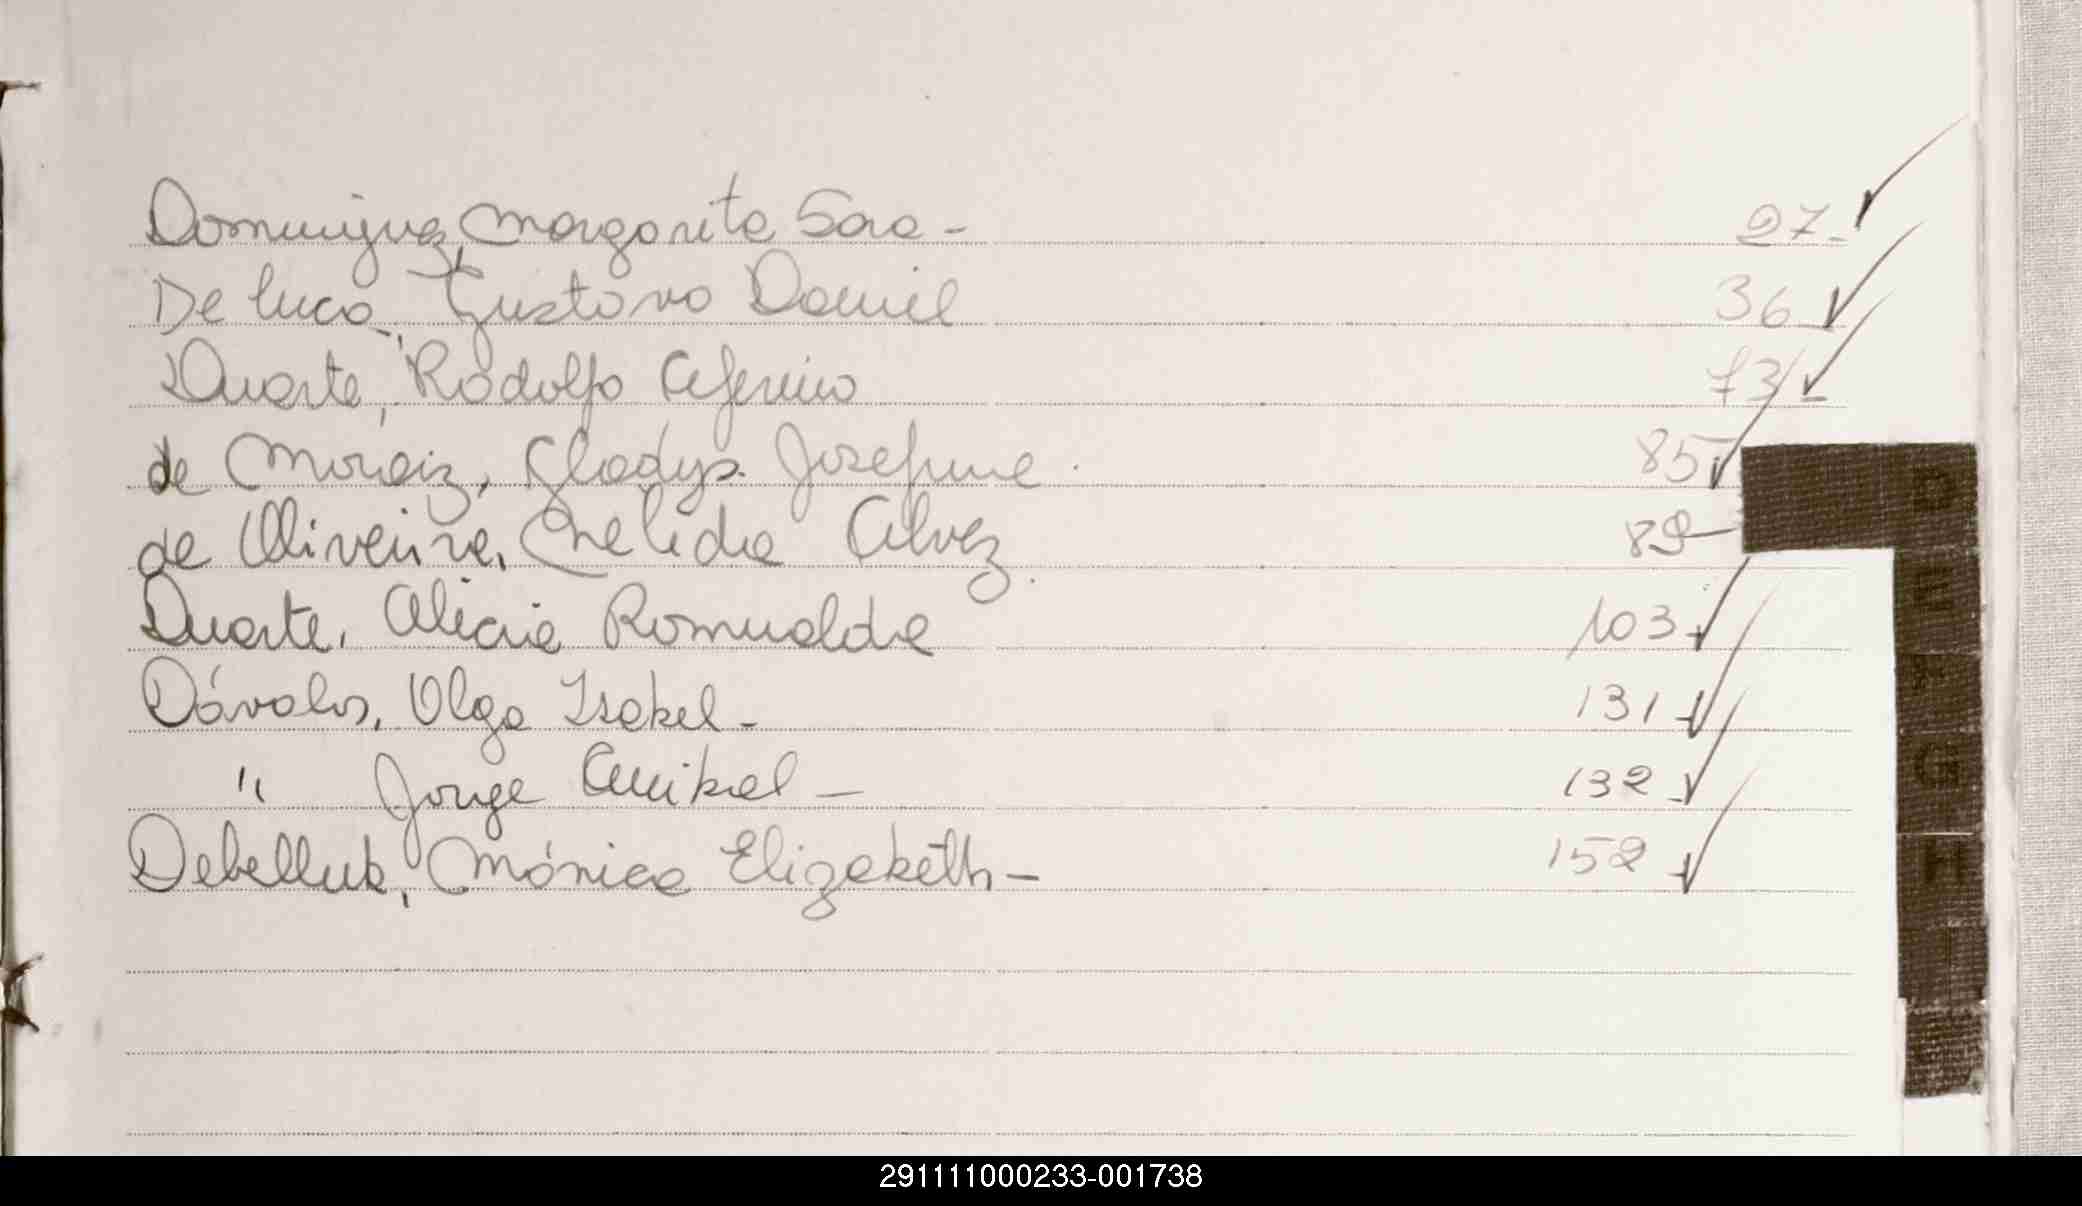 Dominguez, Margarita Sara - 27 -
De Luca, Gustavo Daniel 36
Duarte, Rodolfo Ceferino 73
de Moraiz, Gladys Josefina 85
de Oliveira, Nelida Alvez 89
Duarte, Alicia Romualda 103
Dávalos, Olga Isabel - 131
" Jorge Anibal - 132
Debelluk, Mónica Elizabeth - 152
D
E
F
G
H
I
291111000233-001738